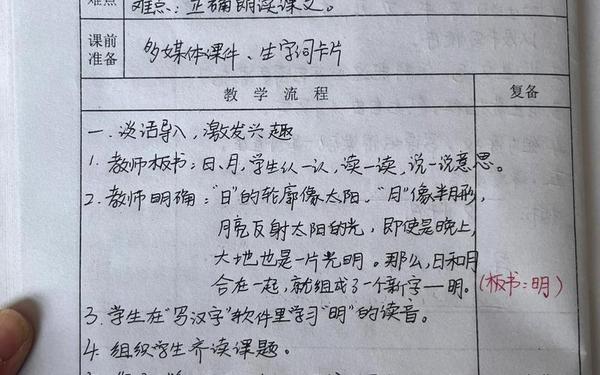 难点：正确朗读课文。
课前准备 多媒体课件、生字词卡片
教学流程 复备
一.谈话导入，激发兴趣
1.教师板书：日、月，学生认一认，读一读，说一说意思。
2.教师明确："日"的轮廓像太阳，"月"像半月形，
月亮反射太阳的光，即使是晚上，
大地也是一片光明。那么，日和月
合在一起，就组成了一个新字—明。(板书：明)
3.学生在"写汉字"软件里学习"明"的读音。
4.组织学生齐读课题。